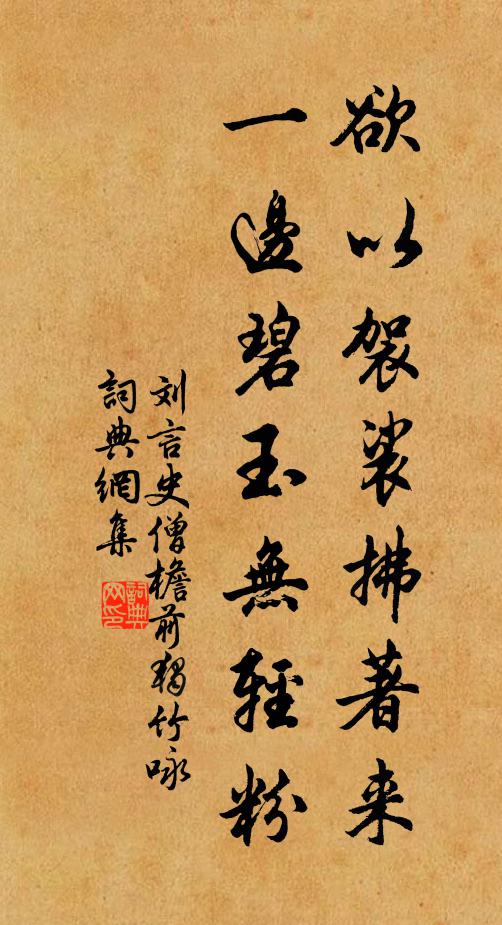 欲以袈裟拂著来
一邊碧玉無輕粉
刘言史僧檐前獨竹咏
詞典網集
詞典
网印